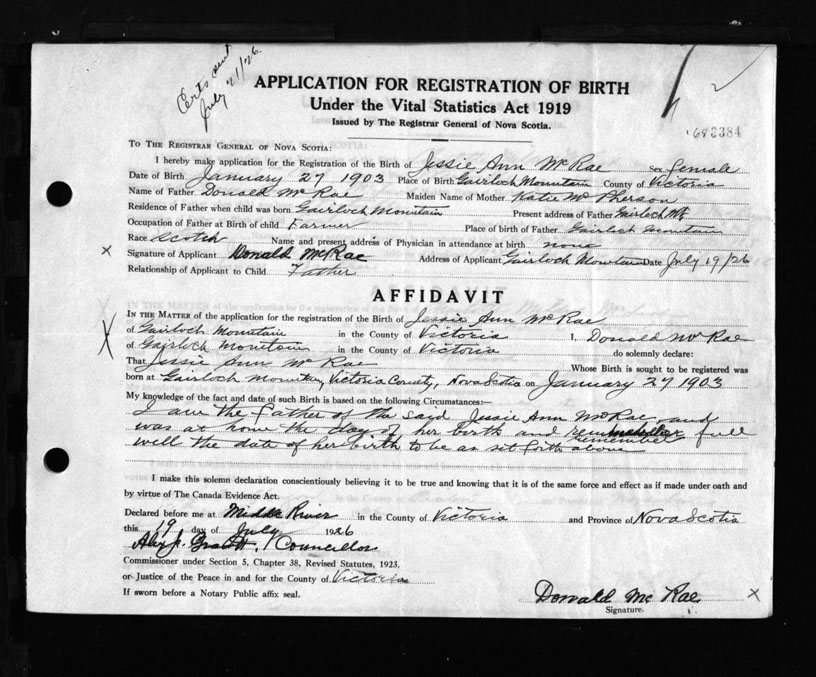 Certs sent
July 21/26.
APPLICATION FOR REGISTRATION OF BIRTH
Under the Vital Statistics Act 1919
Issued by The Registrar General of Nova Scotia.
To The Registrar General of Nova Scotia:
I hereby make application for the Registration of the Birth of Jessie Ann McRae Sex female
Date of Birth January 27 1903 Place of Birth Gairloch Mountain County of Victoria
Name of Father Donald McRae Maiden Name of Mother Katie McPherson
Residence of Father when child was born Gairloch Mountain Present address of Father Gairloch Mt
Occupation of Father at Birth of child Farmer Place of birth of Father Gairloch Mountain
Race Scotch Name and present address of Physician in attendance at birth none
x Signature of Applicant Donald McRae Address of Applicant Gairloch Mountain Date July 19/26
Relationship of Applicant to Child Father
AFFIDAVIT
In the Matter of the application for the registration of the Birth of Jessie Ann McRae
of Gairloch Mountain in the County of Victoria I, Donald McRae
of Gairloch Mountain in the County of Victoria do solemnly declare:
That Jessie Ann McRae Whose Birth is sought to be registered was
born at Gairloch Mountain, Victoria County, Nova Scotia on January 27 1903
My knowledge of the fact and date of such Birth is based on the following Circumstances:—
I am the father of the said Jessie Ann McRae, and
was at home the day of her birth and remember full
well the date of her birth to be as set forth above
I make this solemn declaration conscientiously believing it to be true and knowing that it is of the same force and effect as if made under oath and
by virtue of The Canada Evidence Act.
Declared before me at Middle River in the County of Victoria and Province of Nova Scotia
this 19 day of July 1926
Councillor
Commissioner under Section 5, Chapter 38, Revised Statutes, 1923.
or Justice of the Peace in and for the County of Victoria
If sworn before a Notary Public affix seal.
Donald McRae x
Signature.